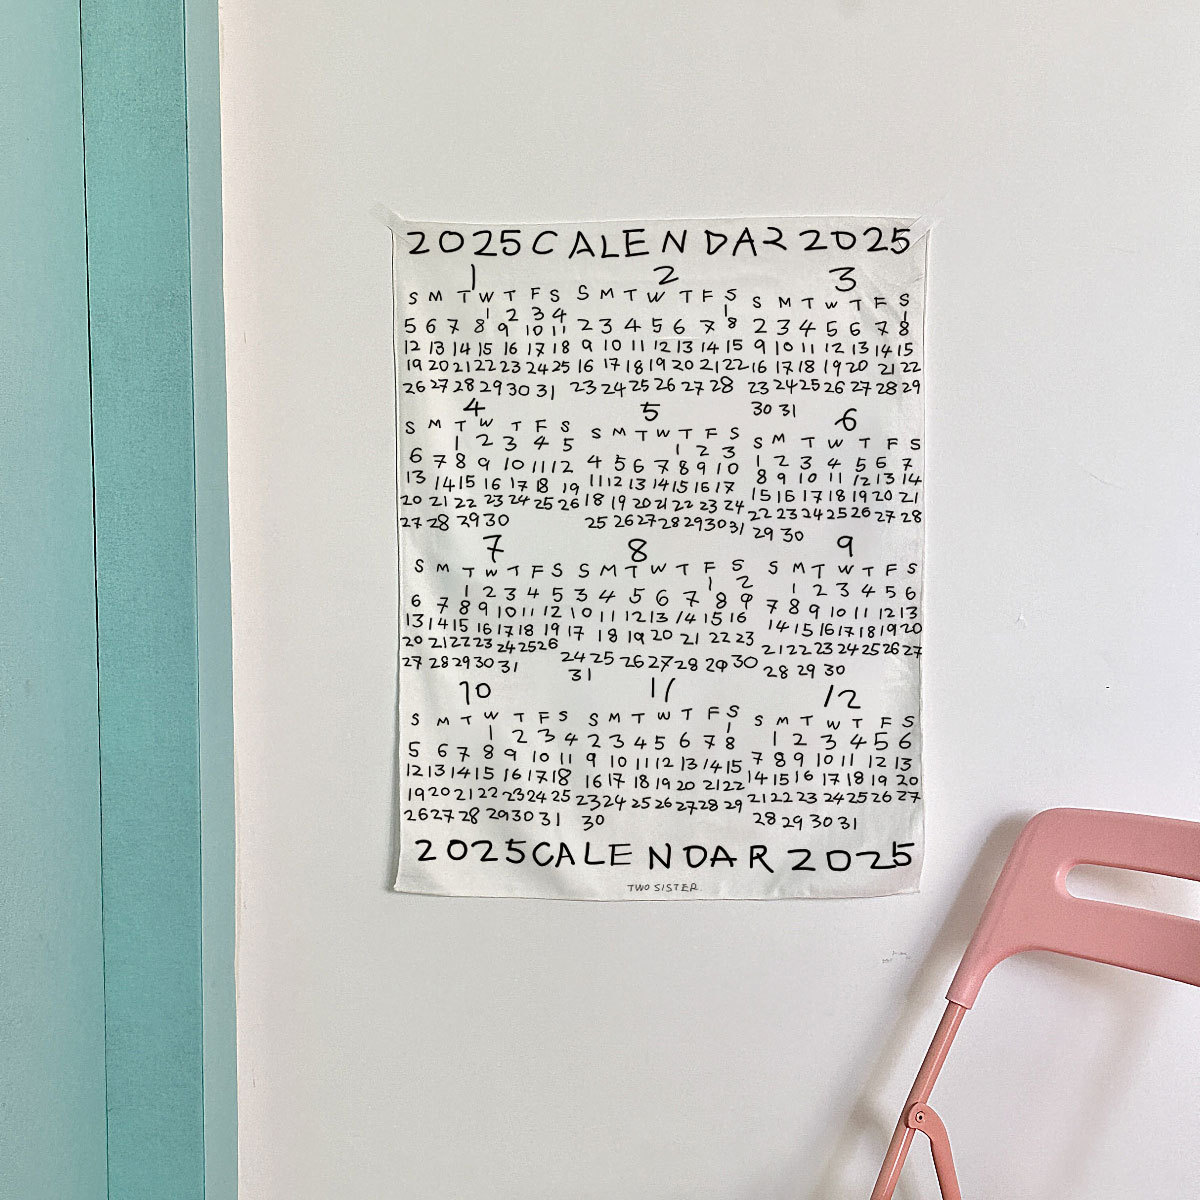 2025 CALENDAR 2025
1
S M T W T F S
1 2 3 4
5 6 7 8 9 10 11
12 13 14 15 16 17 18
19 20 21 22 23 24 25
26 27 28 29 30 31
2
S M T W T F S
1
2 3 4 5 6 7 8
9 10 11 12 13 14 15
16 17 18 19 20 21 22
23 24 25 26 27 28
3
S M T W T F S
1
2 3 4 5 6 7 8
9 10 11 12 13 14 15
16 17 18 19 20 21 22
23 24 25 26 27 28 29
30 31
4
S M T W T F S
1 2 3 4 5
6 7 8 9 10 11 12
13 14 15 16 17 18 19
20 21 22 23 24 25 26
27 28 29 30
5
S M T W T F S
1 2 3
4 5 6 7 8 9 10
11 12 13 14 15 16 17
18 19 20 21 22 23 24
25 26 27 28 29 30 31
6
S M T W T F S
1 2 3 4 5 6 7
8 9 10 11 12 13 14
15 16 17 18 19 20 21
22 23 24 25 26 27 28
29 30
7
S M T W T F S
1 2 3 4 5
6 7 8 9 10 11 12
13 14 15 16 17 18 19
20 21 22 23 24 25 26
27 28 29 30 31
8
S M T W T F S
1 2
3 4 5 6 7 8 9
10 11 12 13 14 15 16
17 18 19 20 21 22 23
24 25 26 27 28 29 30
31
9
S M T W T F S
1 2 3 4 5 6
7 8 9 10 11 12 13
14 15 16 17 18 19 20
21 22 23 24 25 26 27
28 29 30
10
S M T W T F S
1 2 3 4
5 6 7 8 9 10 11
12 13 14 15 16 17 18
19 20 21 22 23 24 25
26 27 28 29 30 31
11
S M T W T F S
1
2 3 4 5 6 7 8
9 10 11 12 13 14 15
16 17 18 19 20 21 22
23 24 25 26 27 28 29
30
12
S M T W T F S
1 2 3 4 5 6
7 8 9 10 11 12 13
14 15 16 17 18 19 20
21 22 23 24 25 26 27
28 29 30 31
2025 CALENDAR 2025
TWO SISTER.